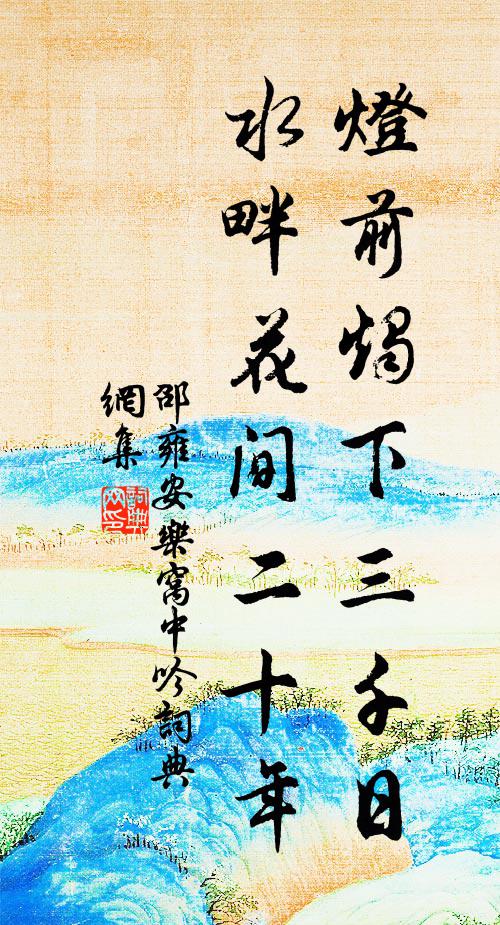 燈前燭下三千日
水畔花間二十年
邵雍安樂窩中吟詞典
網集
詞典網印